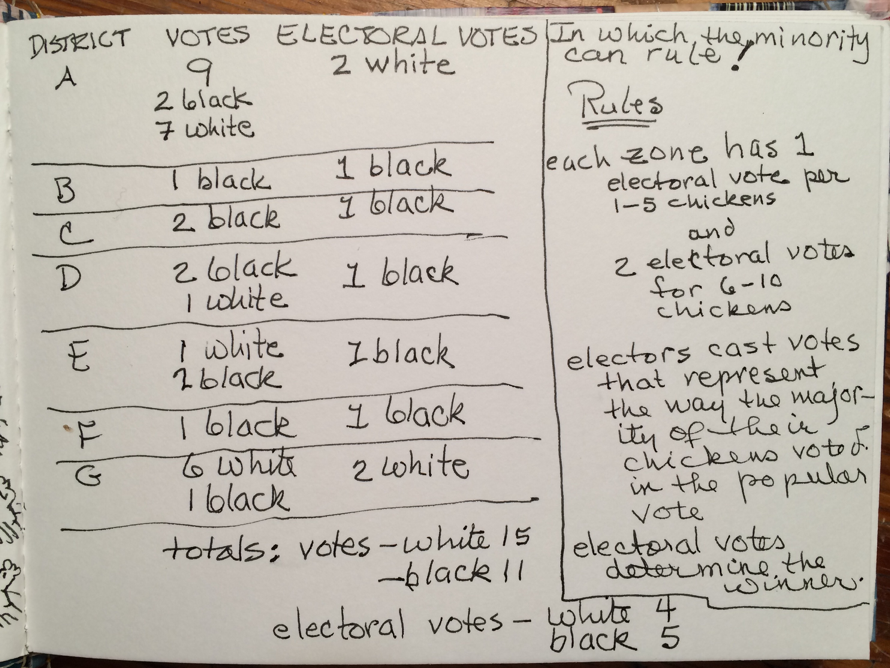 DISTRICT VOTES ELECTORAL VOTES
A 9 2 white
2 black
7 white
B 1 black 1 black
C 2 black 1 black
D 2 black 1 black
1 white
E 1 white 1 black
2 black
F 1 black 1 black
G 6 white 2 white
1 black
totals: votes – white 15
– black 11
electoral votes – white 4
black 5
In which the minority
can rule!
Rules
each zone has 1
electoral vote per
1–5 chickens
and
2 electoral votes
for 6–10
chickens
electors cast votes
that represent
the way the major-
ity of their
chickens voted
in the popular
vote
electoral votes
determine the
winner.